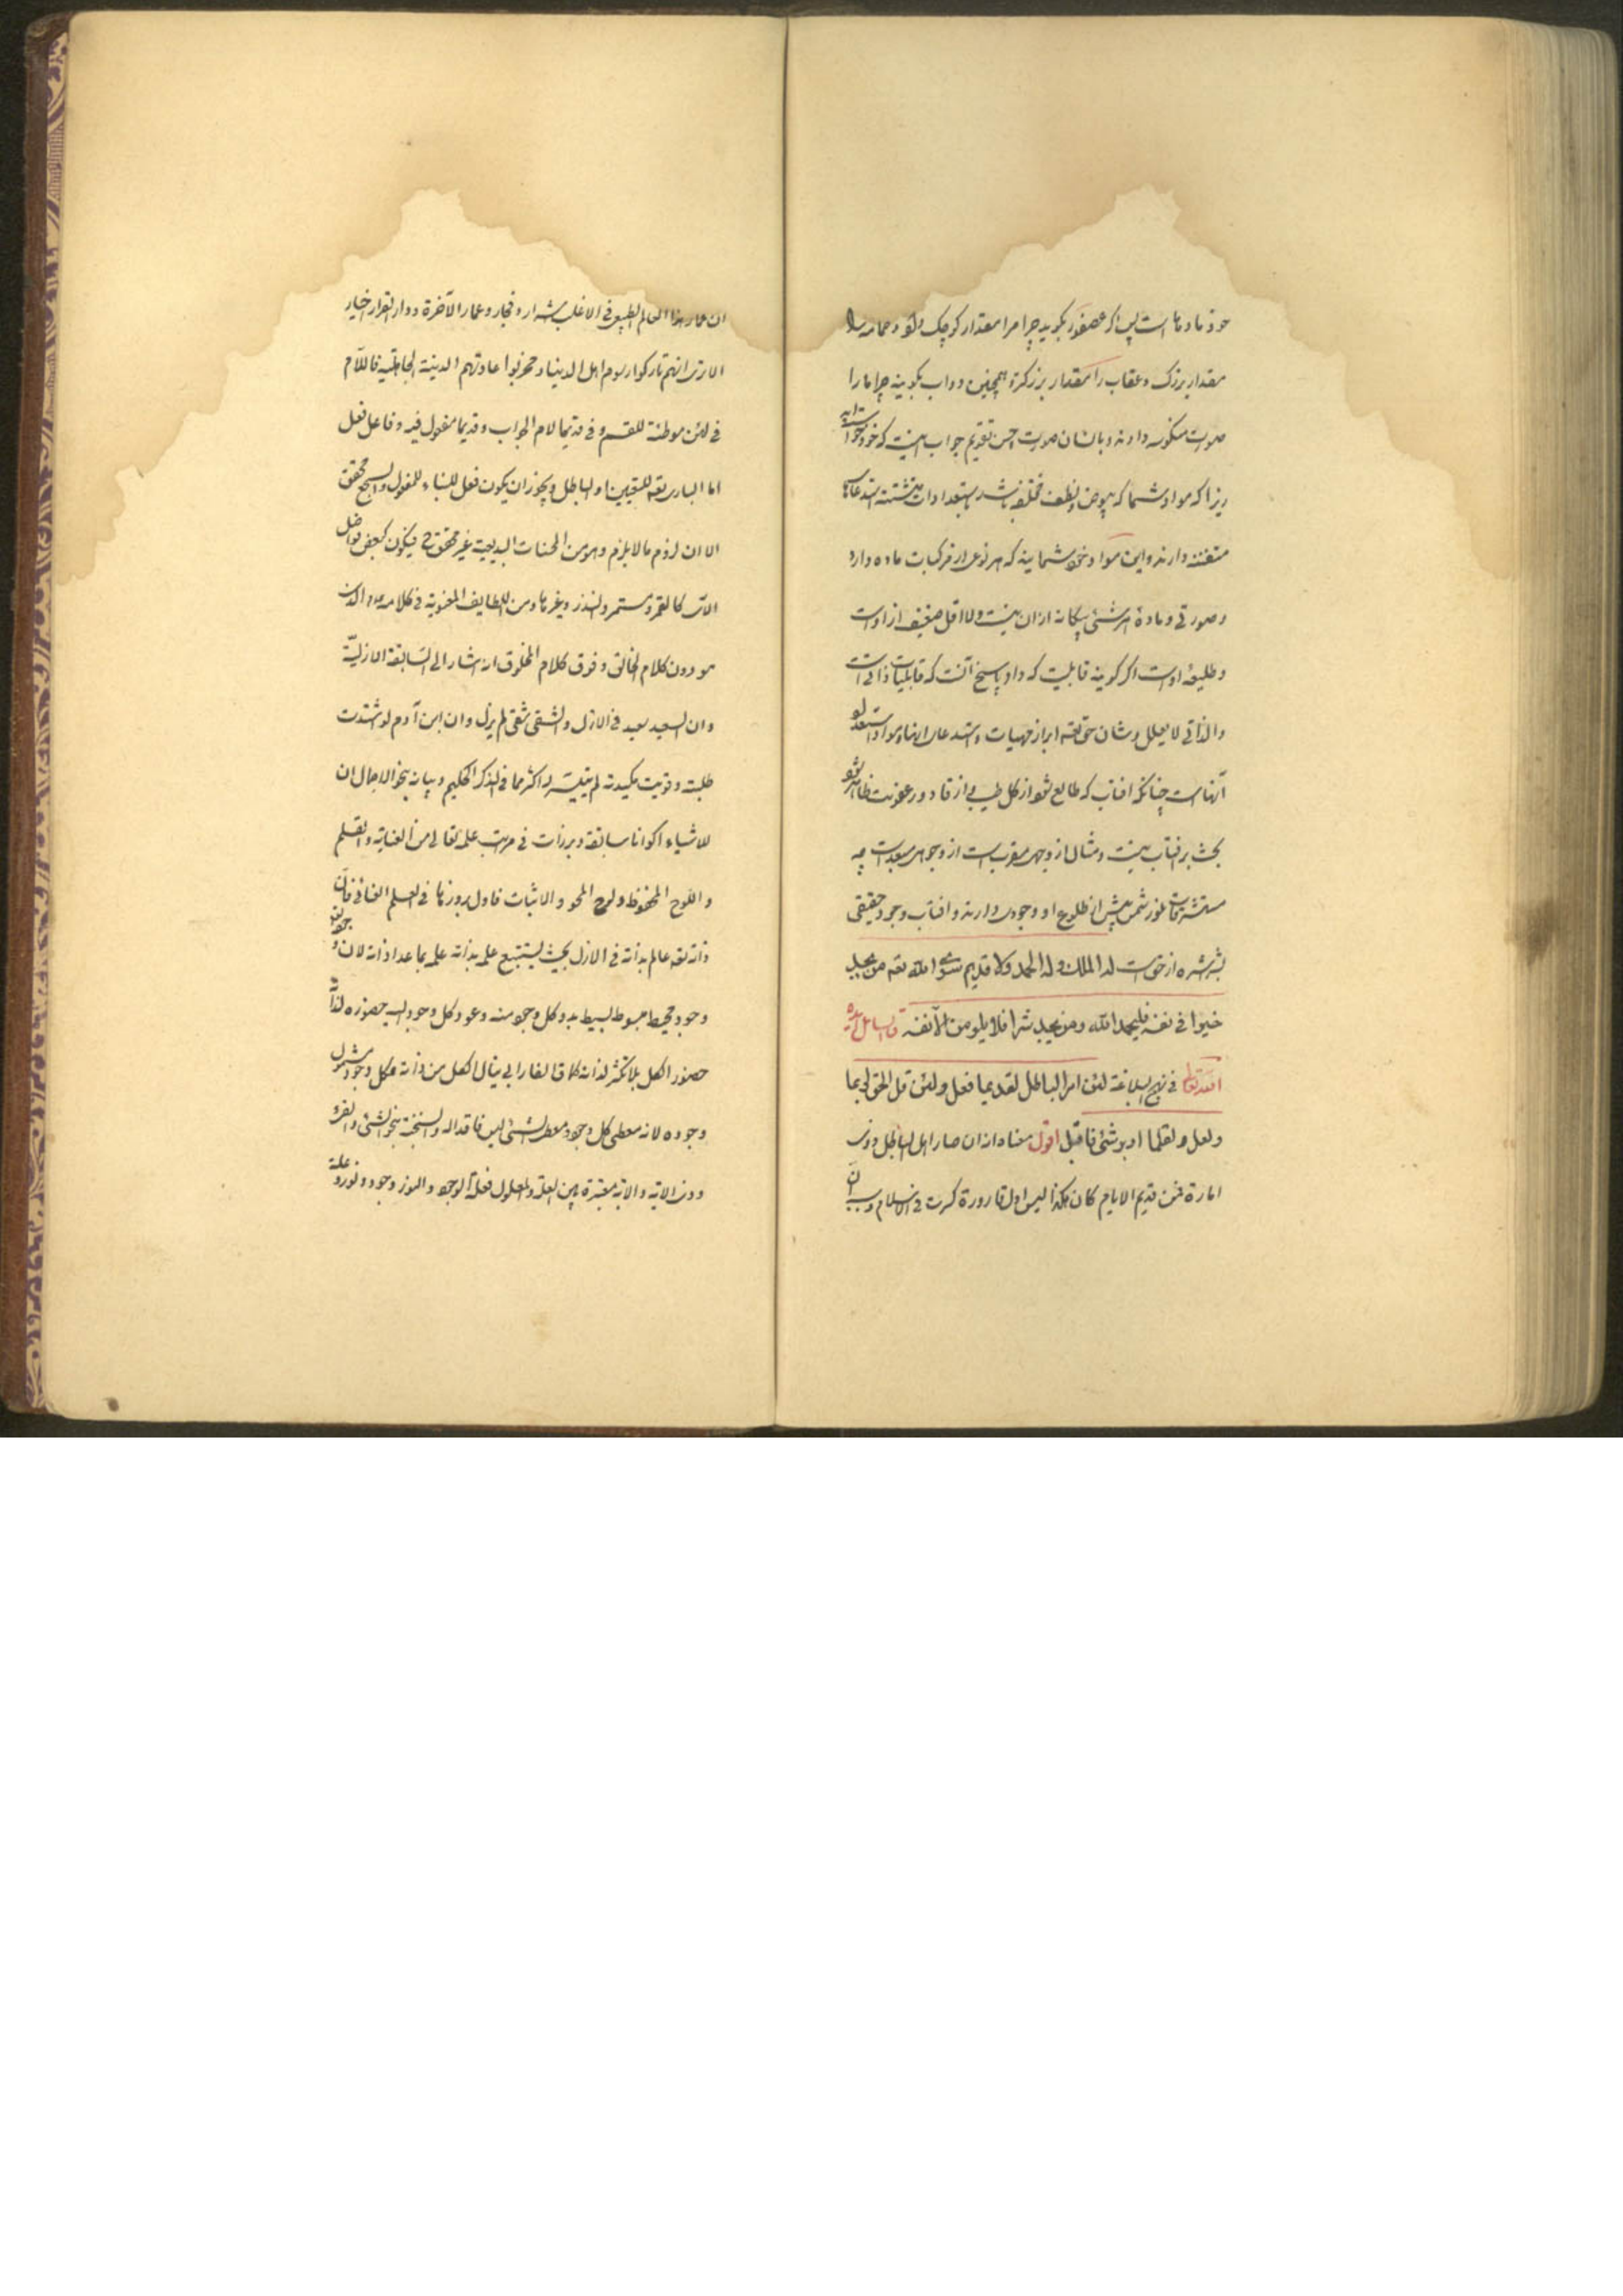 خود ماده ما است پس اگر عصفور بگوید چرا مرا مقدار کوچک داد و حمامه را
مقدار بزرگ و عقاب را مقدار بزرگتره همچنین دواب بگویند چرا ما را
صورت منکوسه دادند و بانسان صورت احسن تقویم جواب اینست که خود خواسته‌اید
زیرا که مواد شما که بیوض و نطف مختلفه باشد استعدادات متشتته استدعا
متفننه دارند و این مواد و نحو شمایند که هر نوعی از مرکبات ماده دارد
و صورتی و ماده هر شئی بیگانه از آن نیست و لااقل صنفی از اوست
و طلیعه اوست اگر گویند قابلیت که داد پاسخ آنست که قابلیات ذاتی است
والذاتی لا یعلل و شان حق تعه ابراز مهیات و استدعای اینها و مواد استعداد
آنهاست چنانکه افتاب که طالع شود از گل طیبی و از قاذور عفونت ظاهر شود
بحث بر افتاب نیست و مثال از وجهی مقرب است از وجوهی مبعد است چه
مستشرقات بنور شمس پیش از طلوع او وجودی دارند و افتاب وجود حقیقی
شرشره از خودست له الملك و له الحمد ولا قدیم سوی الله تعه من یجد
خیرا فی نفسه فلیحمد الله و من یجد شرا فلا یلومن الا نفسه قال
فی نهج البلاغة لئن امر الباطل لقدیما فعل و لئن قل الحق لربما
و لعل و لقلما ادبر شئ فاقبل اقول معناه انه ان صار اهل الباطل ذوی
امارة فمن قدیم الایام کان هکذا لیس اول قارورة کسرت فی الاسلام و سببه ان
ان عمار هذا العالم الطبیعی فی الاغلب شرار و فجار و عمار الآخرة و دار القرار اخیار
الا تری انهم تارکوا رسوم اهل الدنیا و مخربوا عادتهم الدینیة الجاهلیة فاللام
فی لئن موطئة للقسم و فی قدیما لام الجواب و قدیما مفعول فیه و فاعل فعل
اما الباری تعه للتقیین او الباطل و یجوز ان یکون فعل للبناء للمفعول و السجع محقق
الا ان لزوم ما لا یلزم و هو من المحسنات البدیعیة غیر محقق ح فیکون کبعض فواصل
الآی کالقمر و مستمر و النذر و غیرها و من اللطایف المعنویة فی کلامه الذی
هو دون کلام الخالق و فوق کلام المخلوق انه اشار الی السابقة الازلیة
و ان السعید سعید فی الازل و الشقی شقی لم یزل و ان ابن آدم لو اشتدت
طلبته و قویت مکیدته لم یتیسر له اکثر مما فی الذکر الحکیم و بیانه بنحو الاجمال ان
للاشیاء اکوانا سابقة و برزات فی مراتب علمه تعالی من العنایة و القلم
و اللوح المحفوظ و لوح المحو و الاثبات فاول بروزها فی العلم العنائی فان
ذاته تعه عالم بذاته فی الازل بحیث یستتبع علمه بذاته علمه بما عدا ذاته لان
وجود محیط مبسوط بسیط بدو کل وجود منه و عود کل وجود الیه حضوره لذاته
حضور الکل بلا تکثر لذاته کما قال الفارابی ینال الکل من ذاته فکل وجود مشمول
وجوده لانه معطی کل وجود معطی الشئ لیس فاقدا له و السنخیة بنحو الشئ و الفئ
دون الآیة و الآیة معتبرة بین العلة و المعلول فعلة الوجود و النور وجود و نور